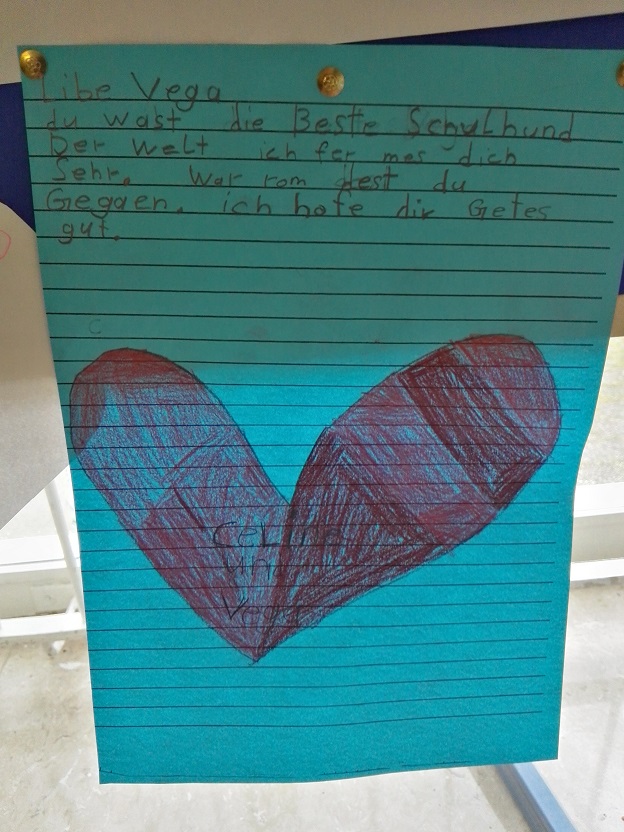 Libe Vega
du wast die Beste Schulhund
Der Welt ich fer mes dich
Sehr. War rom Hest du
Gegaen. ich hofe dir Getes
gut.
C
Celina
und
Vega